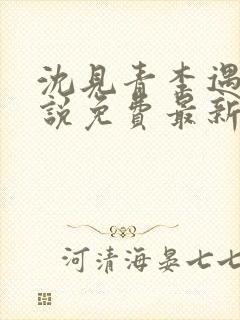 沈見青李遇
說免費最新
河清海晏七七